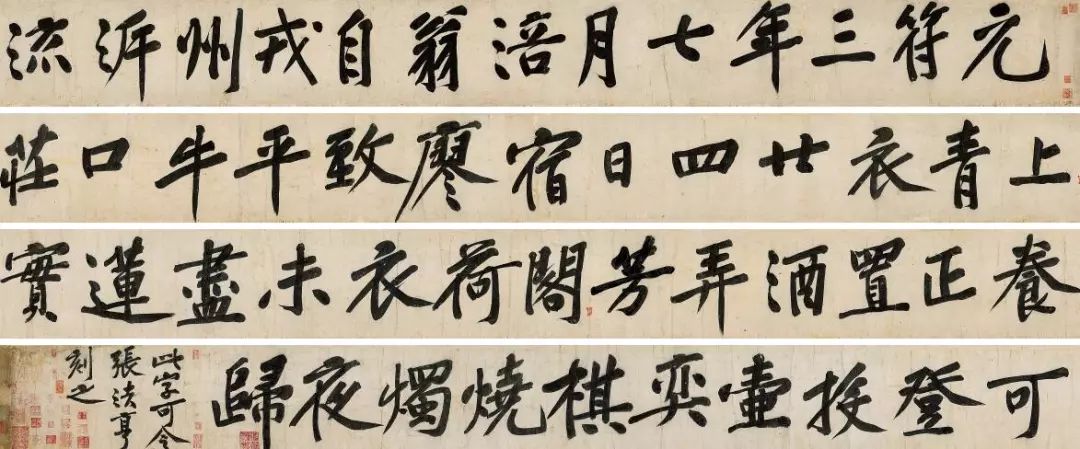 元符三年七月涪翁自戎州泝流
上青衣廿四日宿廖致平牛口莊
養正置酒弄芳閣荷衣未盡蓮實
可登投壺奕棋燒燭夜歸
此字可令
張法亨
刻之